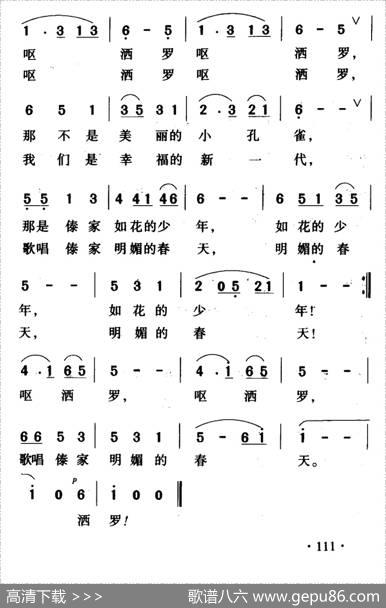 1 · 3 1 3 | 6 - 5 | 1 · 3 1 3 | 6 - 5 ∨ |
呕 洒 罗 呕 洒 罗,
呕 洒 罗 呕 洒 罗,
6 5 1 | 3 5 3 1 | 2 · 3 2 1 | 6 - - ∨ |
那 不 是 美 丽 的 小 孔 雀,
我 们 是 幸 福 的 新 一 代,
5 5 1 3 | 4 4 1 4 6 | 6 - - | 6 5 1 3 5 |
那是 傣 家 如花的少 年, 如 花的少
歌唱 傣 家 明媚的春 天, 明 媚的春
5 - - | 5 3 1 | 2 0 5 2 1 | 1 - - :‖
年, 如 花 的 少 年!
天, 明 媚 的 春 天!
4 · 1 6 5 | 5 - - | 4 · 1 6 5 | 5 - - |
呕 洒 罗, 呕 洒 罗,
6 6 5 3 | 5 3 1 | 5 - 6 1 | 1 - - |
歌唱 傣 家 明 媚 的 春 天。
1 0 6 | 1 0 0 ‖
p
洒 罗!
· 111 ·
高清下载 >>> 歌谱八六 www.gepu86.com